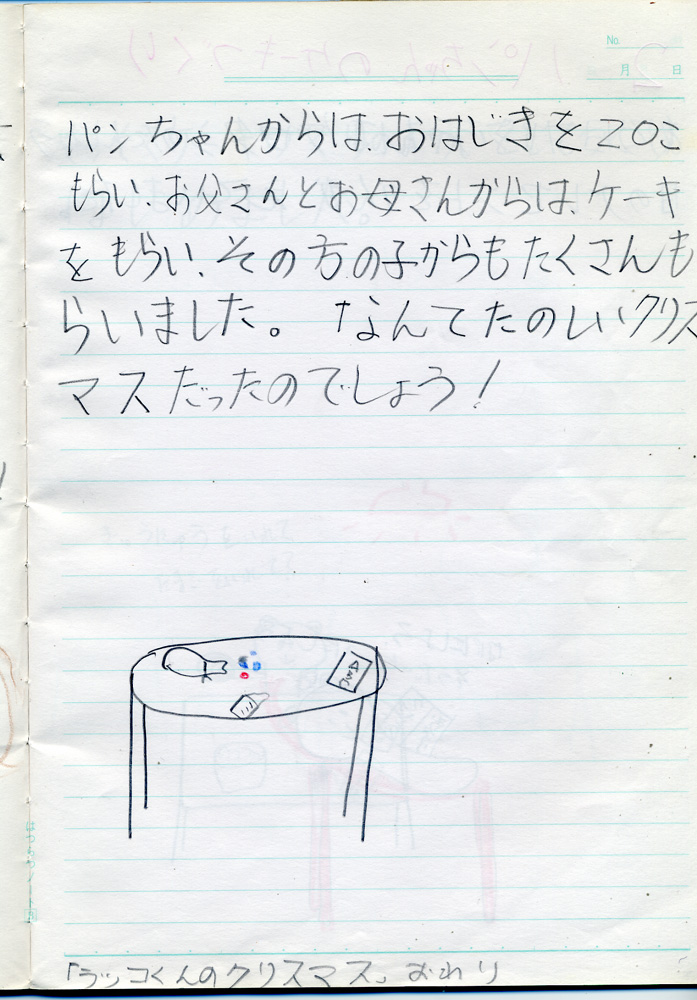 No.
月 日
パンちゃんからは、おはじきを20こ
もらい、お父さんとお母さんからは、ケーキ
をもらい、その方の子からもたくさんも
らいました。 なんてたのしいクリス
マスだったのでしょう!
「ラッコくんのクリスマス」おわり